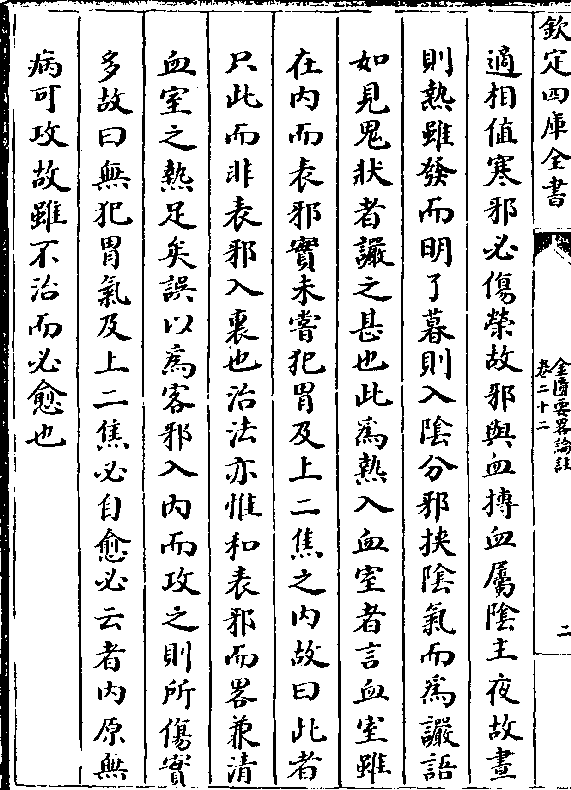 欽定四庫全書
金匱要畧論註
卷二十二
二
適相值寒邪必傷榮故邪與血摶血屬陰主夜故晝
則熱雖發而明了暮則入陰分邪挾陰氣而為讝語
如見鬼狀者讝之甚也此為熱入血室者言血室雖
在内而表邪實未嘗犯胃及上二焦之内故曰此者
只此而非表邪入裏也治法亦惟和表邪而畧兼清
血室之熱足矣誤以為客邪入内而攻之則所傷實
多故曰無犯胃氣及上二焦必自愈必云者内原無
病可攻故雖不治而必愈也